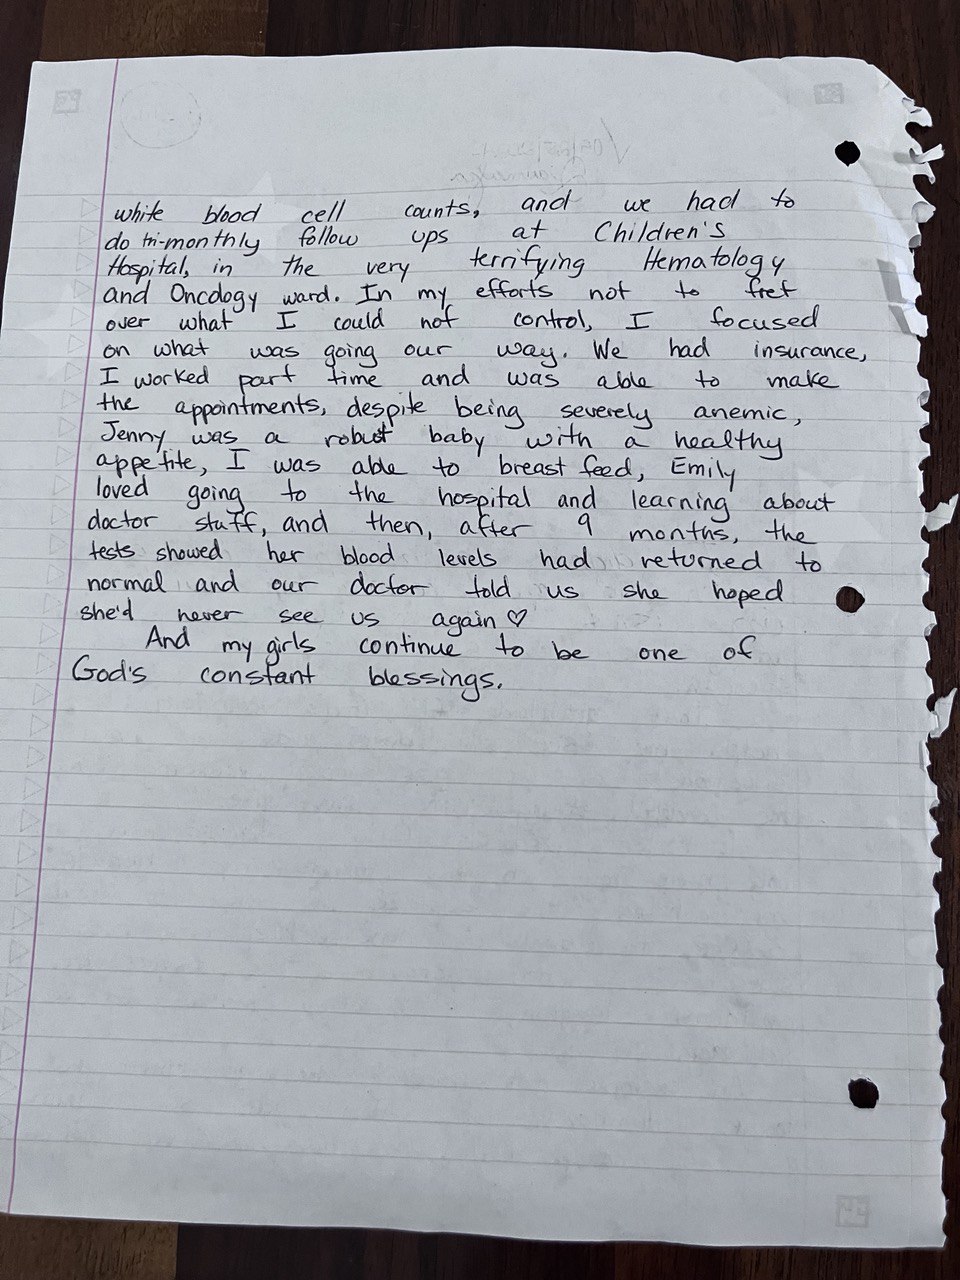 white blood cell counts, and we had to
do tri-monthly follow ups at Children's
Hospital, in the very terrifying Hematology
and Oncology ward. In my efforts not to fret
over what I could not control, I focused
on what was going our way. We had insurance,
I worked part time and was able to make
the appointments, despite being severely anemic,
Jenny was a robust baby with a healthy
appetite, I was able to breast feed, Emily
loved going to the hospital and learning about
doctor stuff, and then, after 9 months, the
tests showed her blood levels had returned to
normal and our doctor told us she hoped
she'd never see us again ♡
And my girls continue to be one of
God's constant blessings.